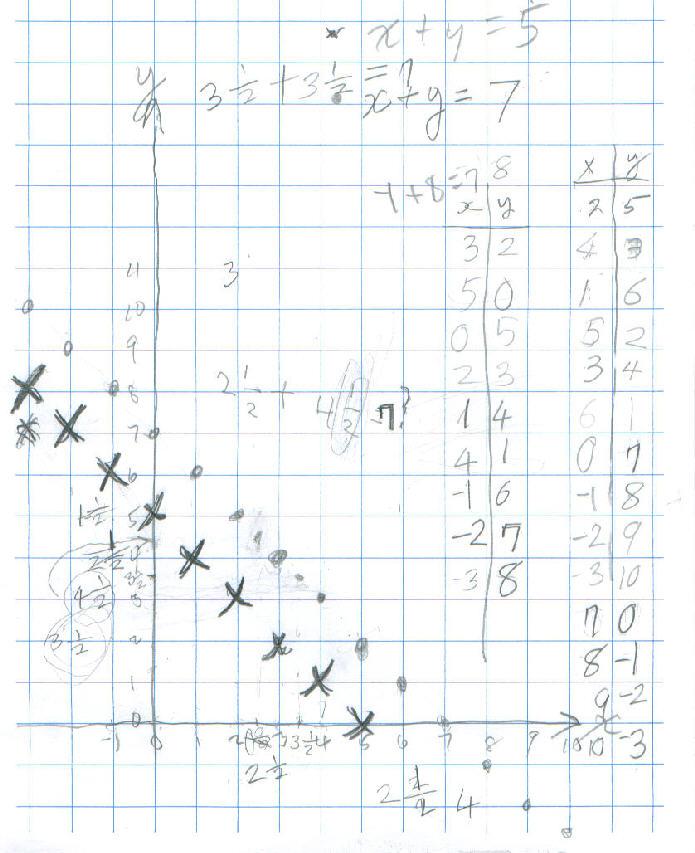 x + y = 5
3 1/2 + 3 1/2 = 7
x + y = 7
y
-1 + 8 = 7 8
x y
3 2
5 0
0 5
2 3
1 4
4 1
-1 6
-2 7
-3 8
x y
2 5
4 3
1 6
5 2
3 4
6 1
0 7
-1 8
-2 9
-3 10
7 0
8 -1
9 -2
10 -3
3
2 1/2 + 4 1/2 = 7
11
10
9
8
7
6
1 1/2 5
2 1/2 4
3 1/2
4 1/2 3
3 1/2 2
1
0
-1 0 1 2 3 3 1/2 4 5 6 7 8 9 10
x
2 1/2
2 1/2 4